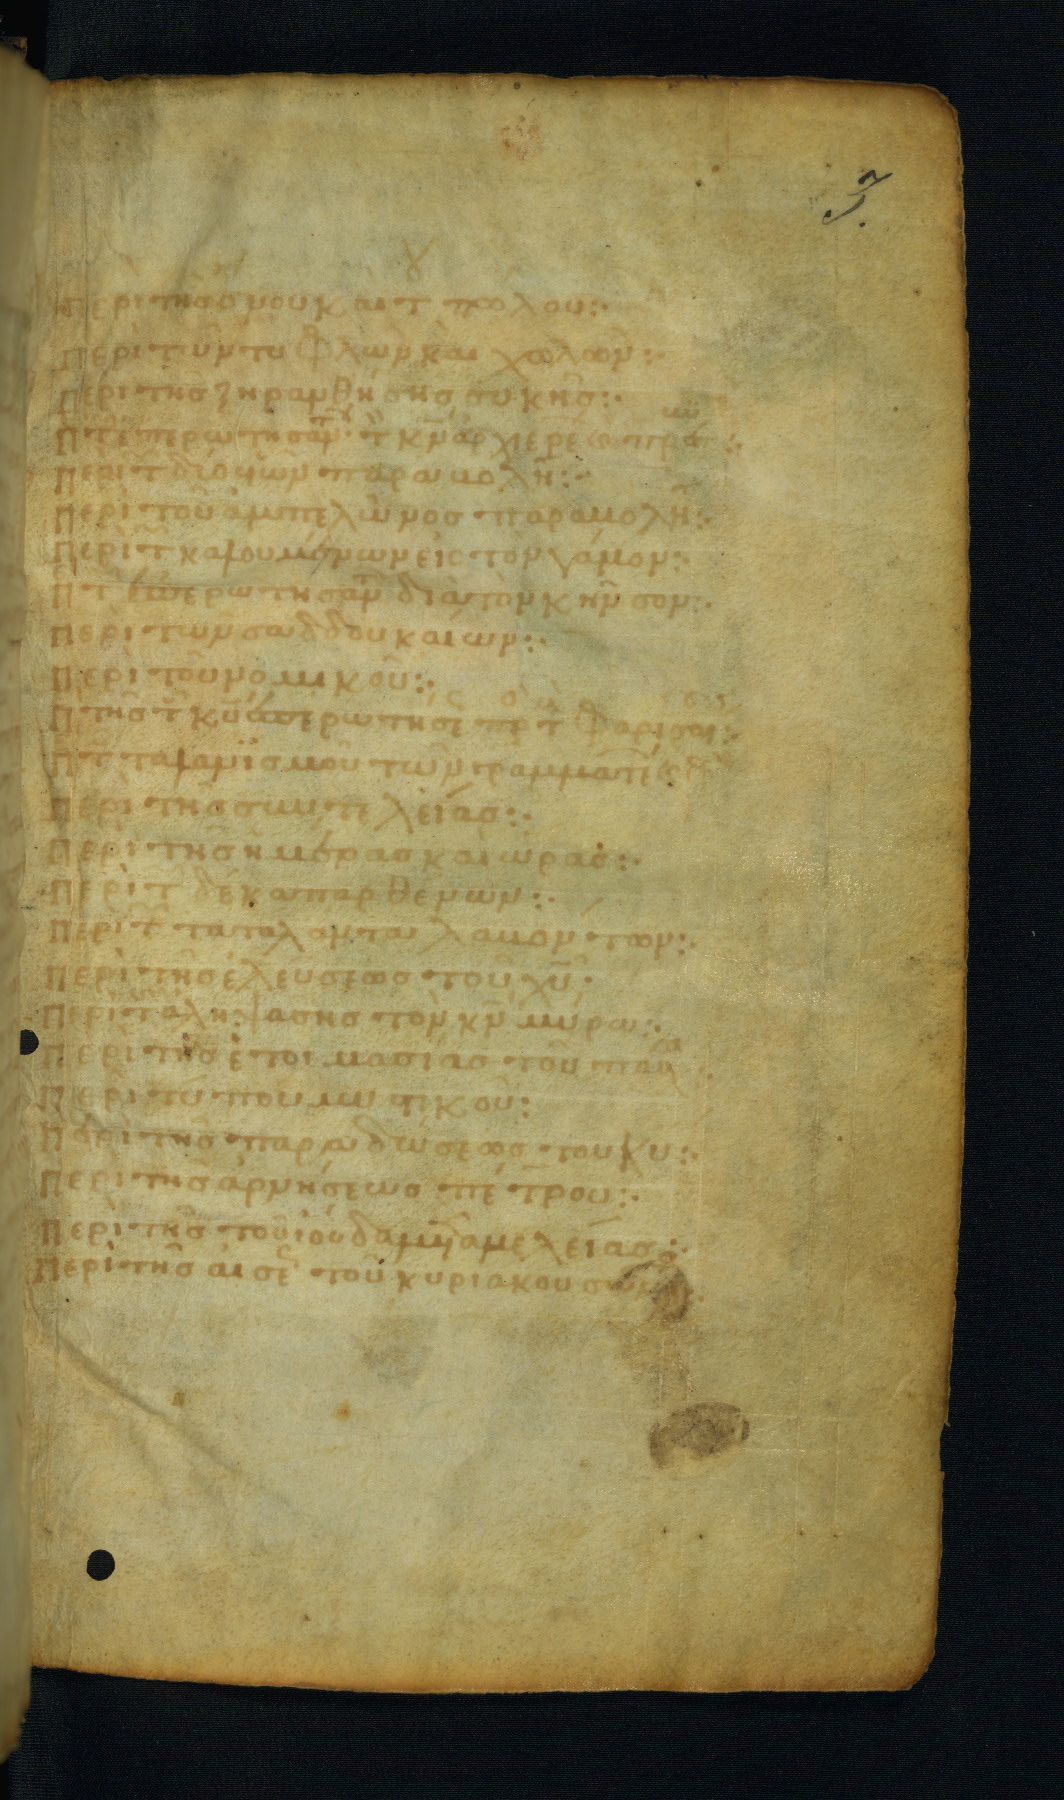 3.
Περὶ τῆς ὄνου καὶ τ πώλου:·
Περὶ τῶν τυφλῶν καὶ χωλῶν:·
Περὶ τῆς ξηρανθήσης συκῆς:·
Π τ ἐπερωτησαν τ κν ἀρχιερέω
Περὶ τ δύο υἱῶν παραβολη:·
Περὶ τοῦ ἀμπελῶνος παραβολη:·
Περὶ τ καλουμένων εἰς τὸν γάμον:·
Π τ ἐπερωτησαν διὰ τὸν κῆνσον:·
Περὶ τῶν σαδδουκαιων:·
Περὶ τοῦ νομικοῦ:·
Π τῆς τ κυ ἐπερωτησε πρ τ φαρισαι:·
Π τ ταλανισμοῦ τῶν γραμματέ
Περὶ τῆς συντελείας:·
Περὶ τῆς ἡμέρας και ωρας:·
Περὶ τ δέκα παρθένων:·
Περὶ τ τα ταλαντα λαβόντων:·
Περὶ τῆς ἐλεύσεως τοῦ χυ:·
Περὶ τ ἀληψάσης τὸν κν μύρω:·
Περὶ τῆς ἑτοιμασίας τοῦ πασχ
Περὶ τύπου μυστικοῦ:
Περὶ τῆς παραδώσεως του χυ:·
Περὶ τῆς ἀρνήσεως πέτρου:·
Περὶ τῆς τοῦ ἰούδα μεταμελείας:·
Περὶ τῆς αιτήσε τοῦ κυριακου σωμ